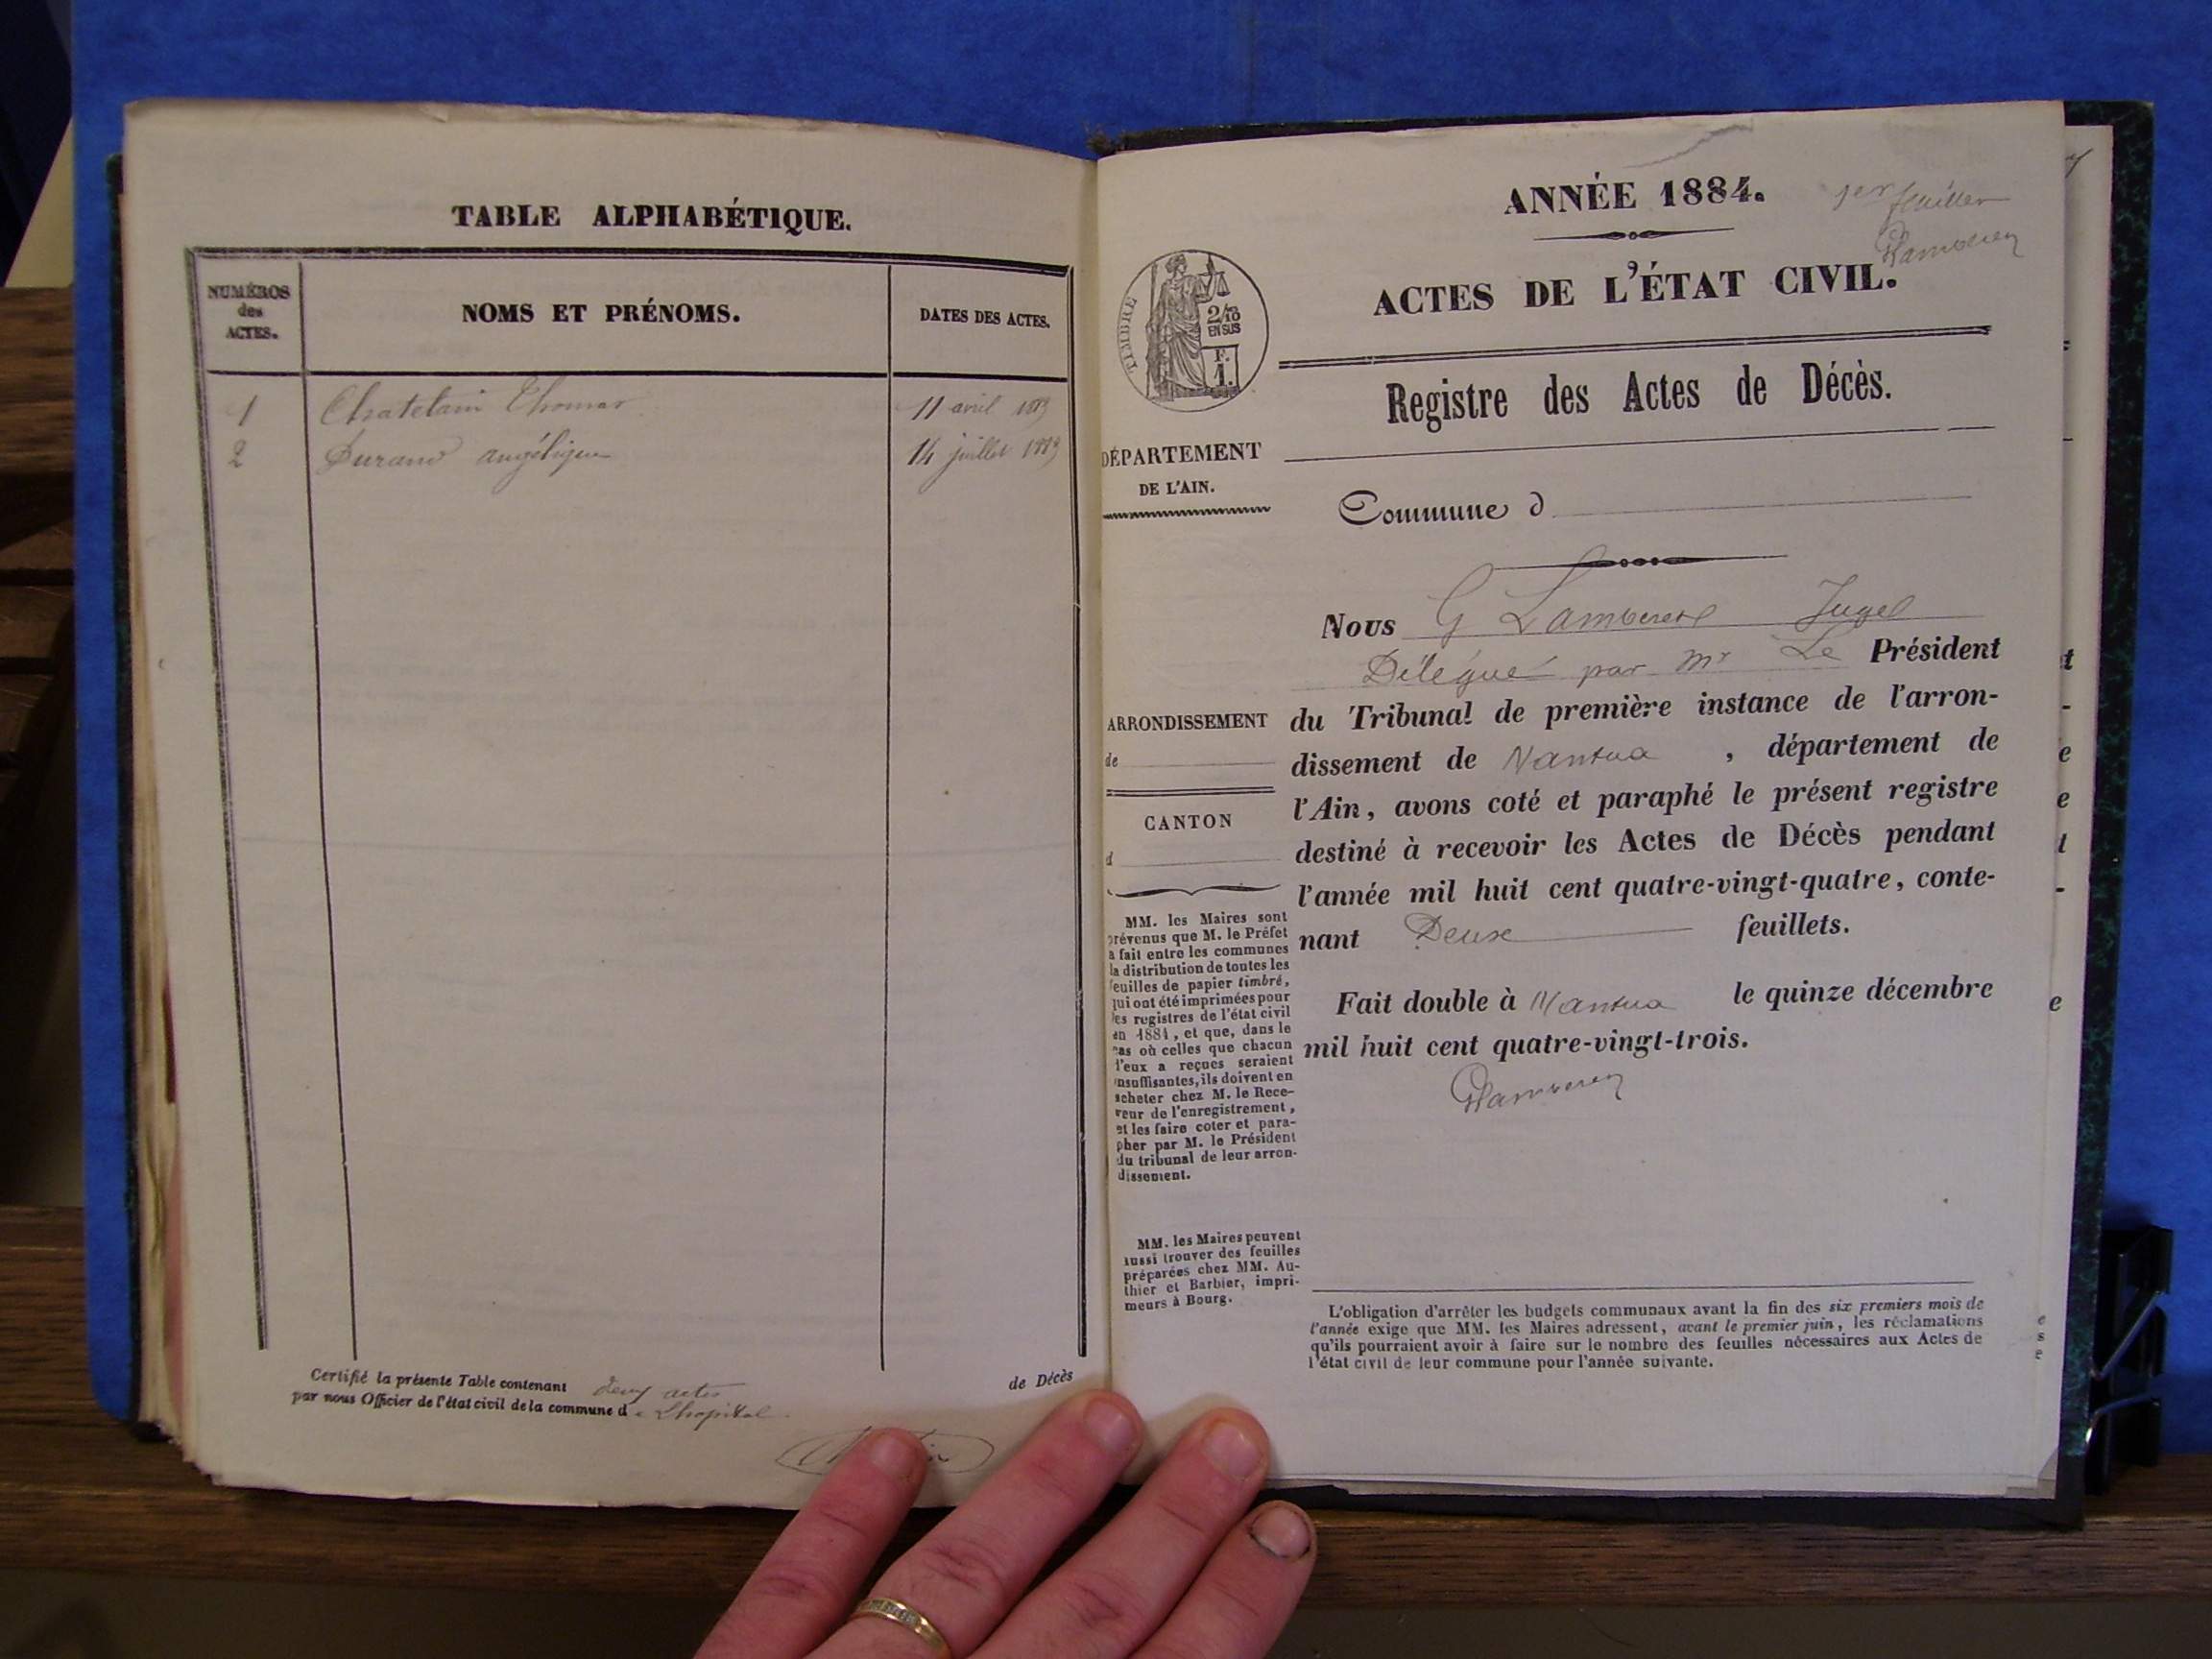 TABLE ALPHABÉTIQUE.
NUMÉROS
des
ACTES.
NOMS ET PRÉNOMS.
DATES DES ACTES.
1 Chatelain Thomas 11 avril 1883
2 Durand angélique 14 juillet 1883
Certifié la présente Table contenant deux actes de Décès
par nous Officier de l'état civil de la commune de Lhopital
ANNÉE 1884.
1er feuillet
ACTES DE L'ÉTAT CIVIL.
TIMBRE
2/10
EN SUS
F.
1.
Registre des Actes de Décès.
DÉPARTEMENT
DE L'AIN.
Commune d
ARRONDISSEMENT
de
CANTON
d
MM. les Maires sont
prévenus que M. le Préfet
a fait entre les communes
la distribution de toutes les
feuilles de papier timbré,
qui ont été imprimées pour
les registres de l'état civil
en 1884, et que, dans le
cas où celles que chacun
d'eux a reçues seraient
insuffisantes, ils doivent en
acheter chez M. le Rece-
veur de l'enregistrement,
et les faire coter et para-
pher par M. le Président
du tribunal de leur arron-
dissement.
MM. les Maires peuvent
aussi trouver des feuilles
préparées chez MM. Au-
thier et Barbier, impri-
meurs à Bourg.
Nous G Lambert Juge
Délégué par Mr Le Président
du Tribunal de première instance de l'arron-
dissement de Nantua, département de
l'Ain, avons coté et paraphé le présent registre
destiné à recevoir les Actes de Décès pendant
l'année mil huit cent quatre-vingt-quatre, conte-
nant Deux feuillets.
Fait double à Nantua le quinze décembre
mil huit cent quatre-vingt-trois.
L'obligation d'arrêter les budgets communaux avant la fin des six premiers mois de
l'année exige que MM. les Maires adressent, avant le premier juin, les réclamations
qu'ils pourraient avoir à faire sur le nombre des feuilles nécessaires aux Actes de
l'état civil de leur commune pour l'année suivante.